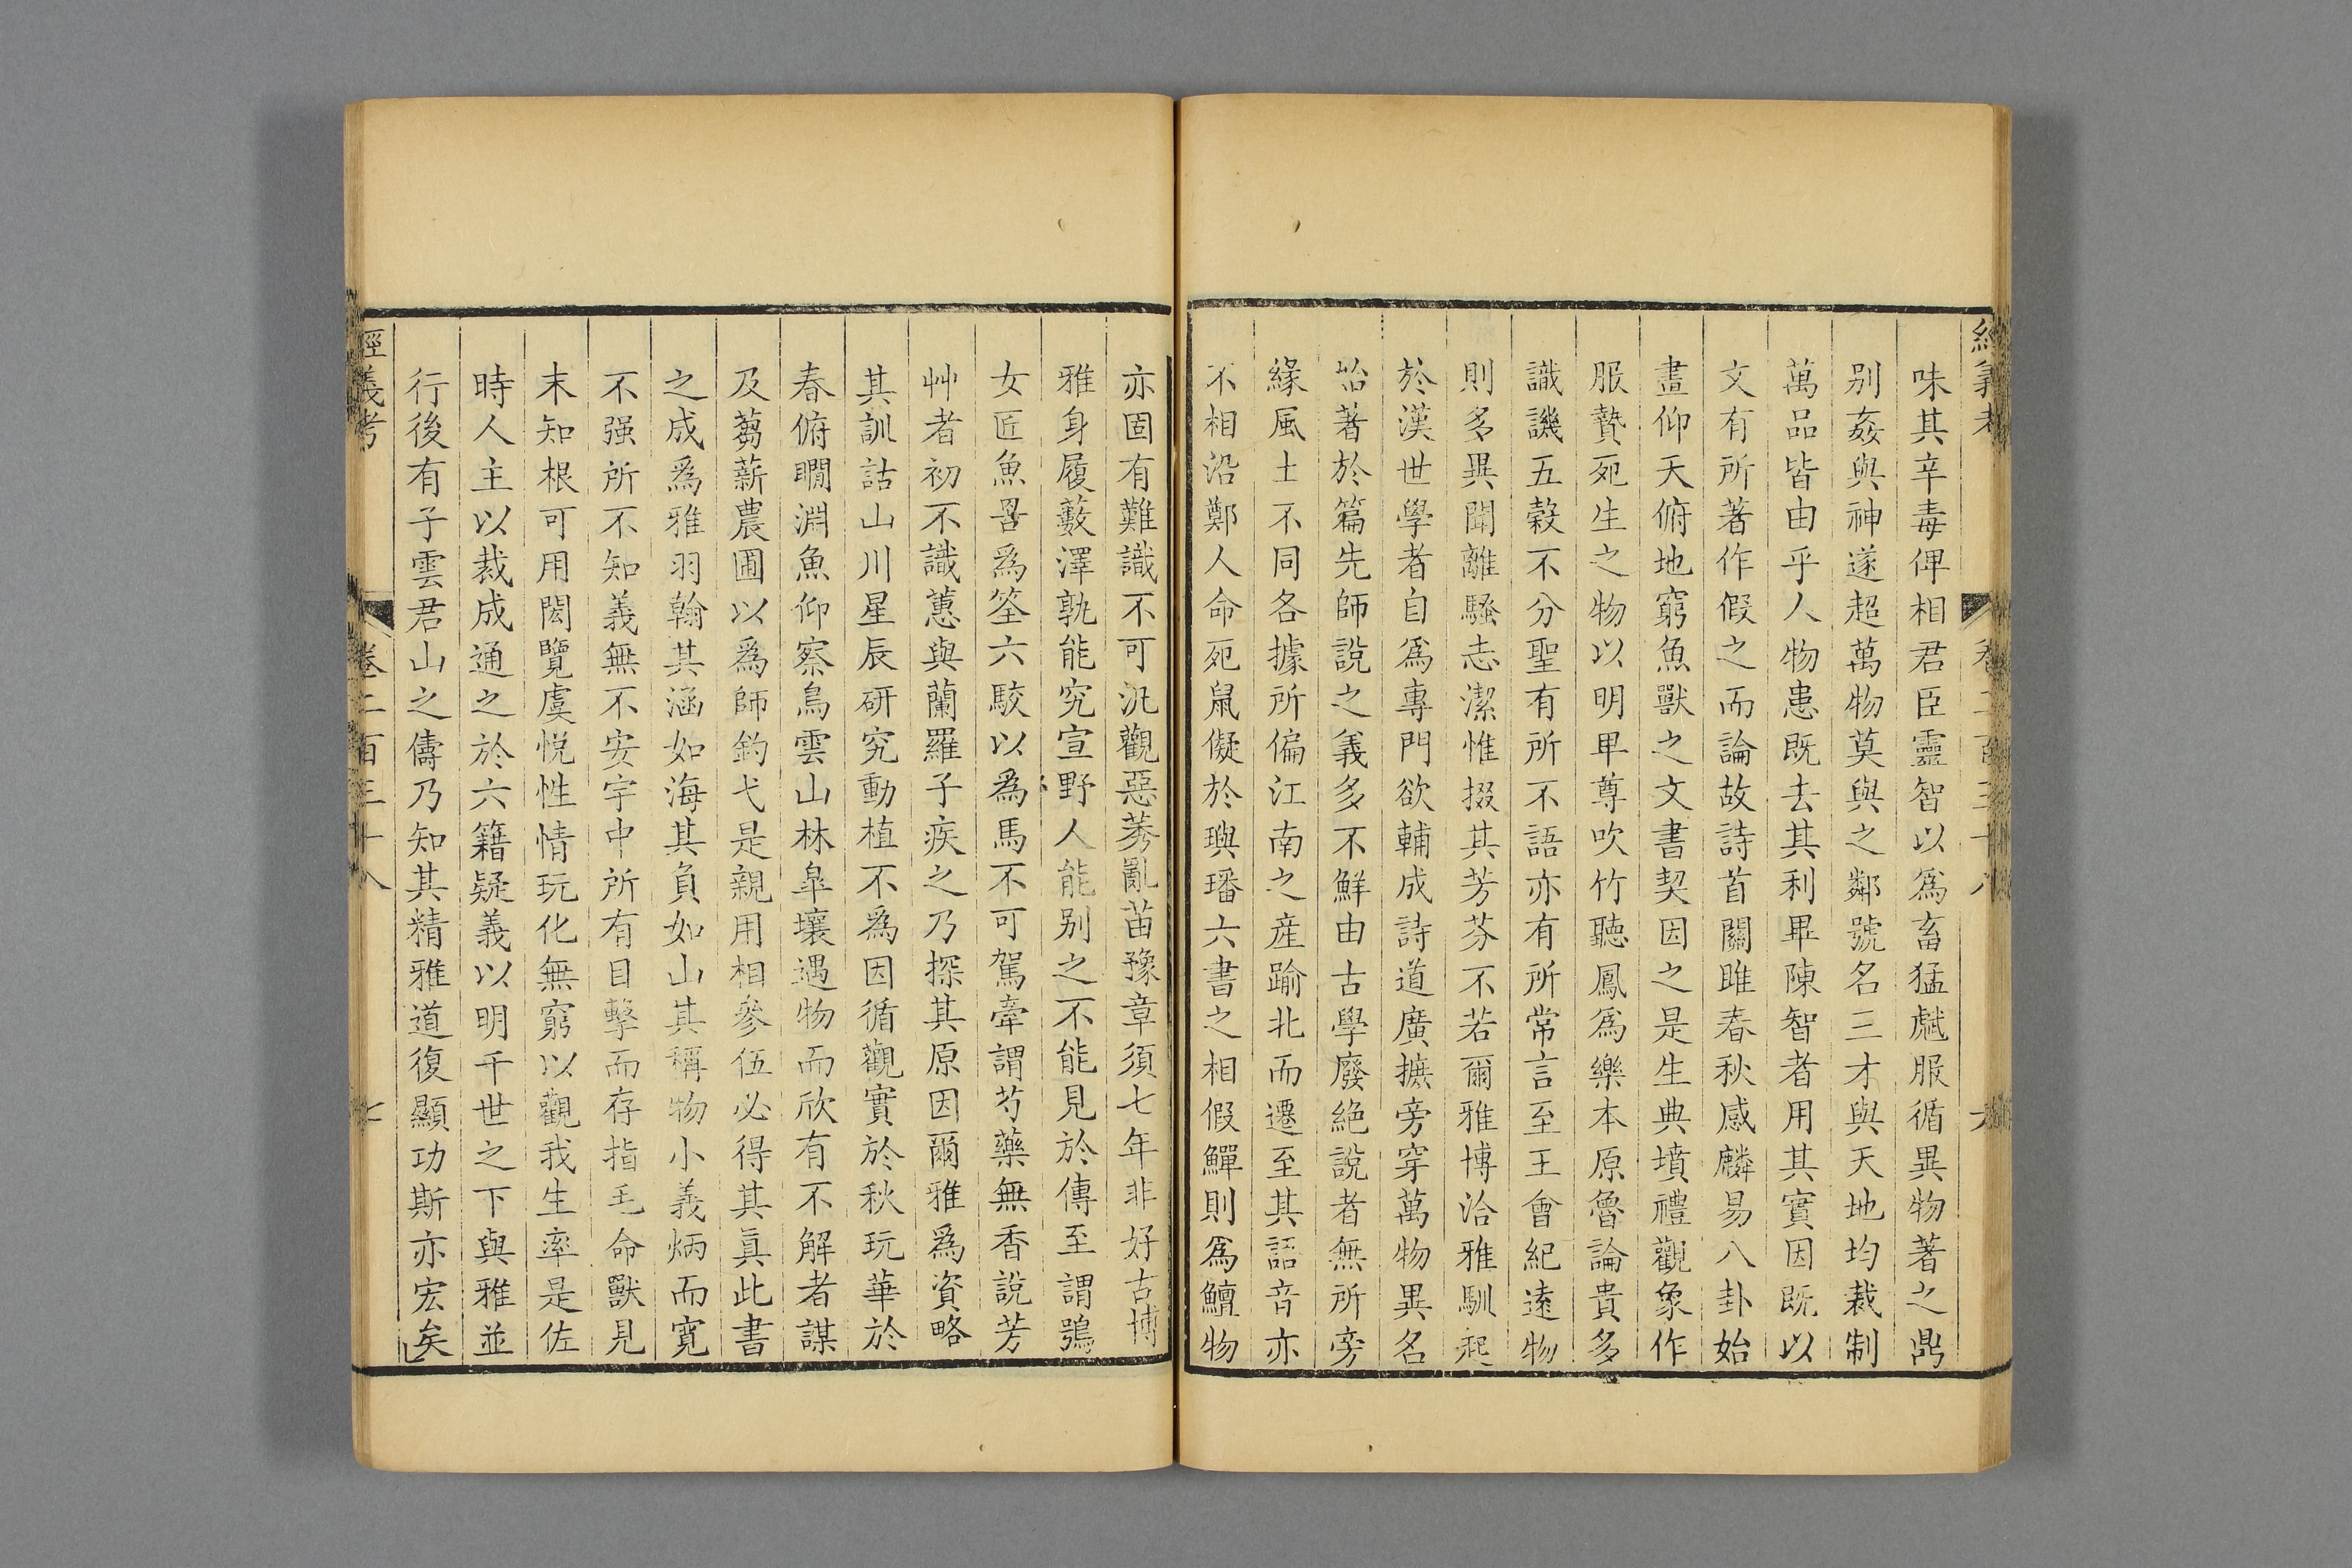 經義考 卷二百三十八 六
味其辛毒俾相君臣靈智以爲畜猛虣服循異物著之鼎
别姦與神遂超萬物莫與之鄰號名三才與天地均裁制
萬品皆由乎人物患既去其利畢陳智者用其實因既以
文有所著作假之而論故詩首關雎春秋感麟易八卦始
畫仰天俯地窮魚獸之文書契因之是生典墳禮觀象作
服贄死生之物以明卑尊吹竹聽鳳爲樂本原魯論貴多
識譏五穀不分聖有所不語亦有所常言至王會紀遠物
則多異聞離騷志潔惟掇其芳芬不若爾雅博洽雅馴起
於漢世學者自爲專門欲輔成詩道廣摭旁穿萬物異名
始著於篇先師說之義多不鮮由古學廢絶説者無所旁
緣風土不同各據所偏江南之産踰北而遷至其語音亦
不相沿鄭人命死鼠儗於璵璠六書之相假鱓則爲鱣物
亦固有難識不可汎觀惡莠亂苗豫章須七年非好古博
雅身履藪澤孰能究宣野人能别之不能見於傳至謂鴞
女匠魚罟爲筌六駮以爲馬不可駕牽謂芍藥無香說芳
艸者初不識蕙與蘭羅子疾之乃探其原因爾雅爲資略
其訓詁山川星辰研究動植不爲因循觀實於秋玩華於
春俯瞯淵魚仰察鳥雲山林皐壤遇物而欣有不解者謀
及蒭薪農圃以爲師釣弋是親用相參伍必得其眞此書
之成爲雅羽翰其涵如海其負如山其稱物小義炳而寛
不强所不知義無不安宇中所有目擊而存指毛命獸見
末知根可用閎覽虞悦性情玩化無窮以觀我生率是佐
時人主以裁成通之於六籍疑義以明千世之下與雅並
行後有子雲君山之儔乃知其精雅道復顯功斯亦宏矣
經義考 卷二百三十八 七